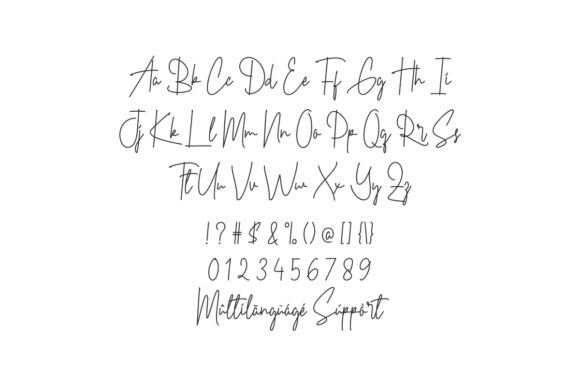 Aa Bb Cc Dd Ee Ff Gg Hh Ii
Jj Kk Ll Mm Nn Oo Pp Qq Rr Ss
Tt Uu Vv Ww Xx Yy Zz
!?#$&%()@[]{|}
0123456789
Mûltílãngüágé Súppòrt